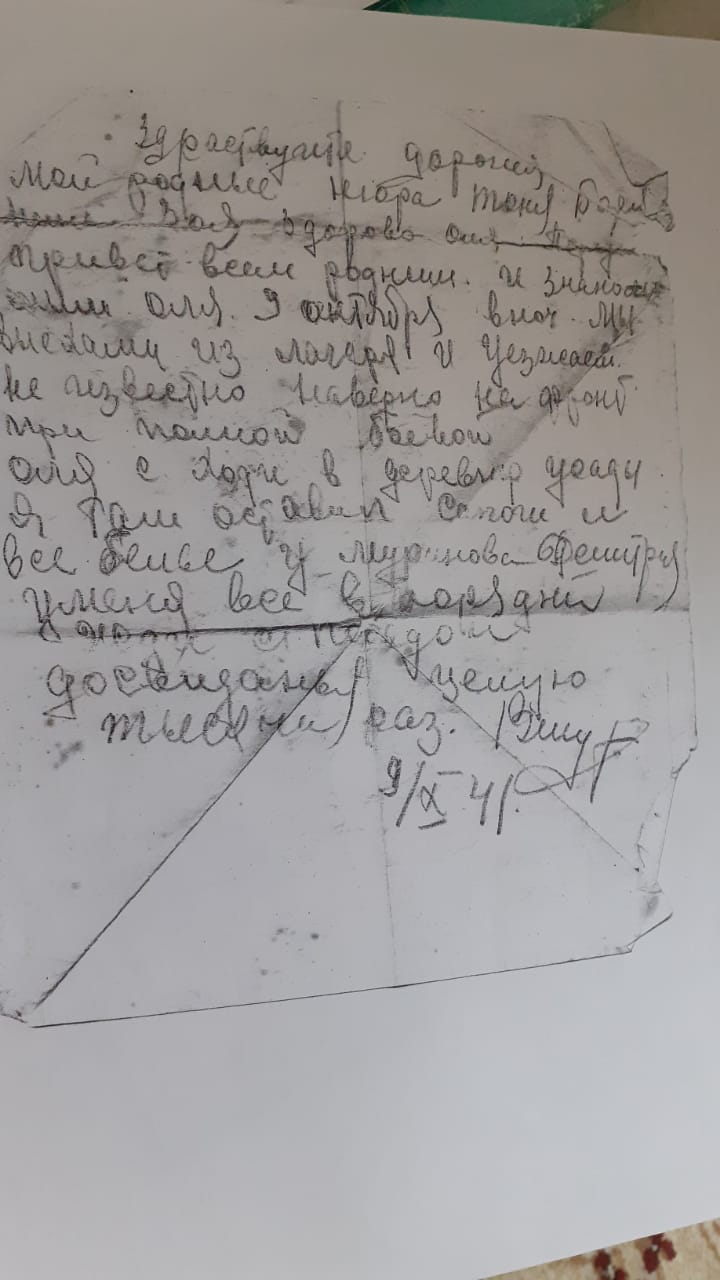 Здраствуйте дорогий
мои родные Нюра Тоня Боря
Зоя здорово Оля
привет всем родным. и знаком
оля. 9 октября вноч. мы
выехами из лагеря и уезжаем.
не известно наверно на фронт
при полной боевой
оля с ходи в деревню усады
я там оставил сапоги и
все белье у
уменя все в порядки
досвидання целую
тысячи раз. Вшу
9/X 41.